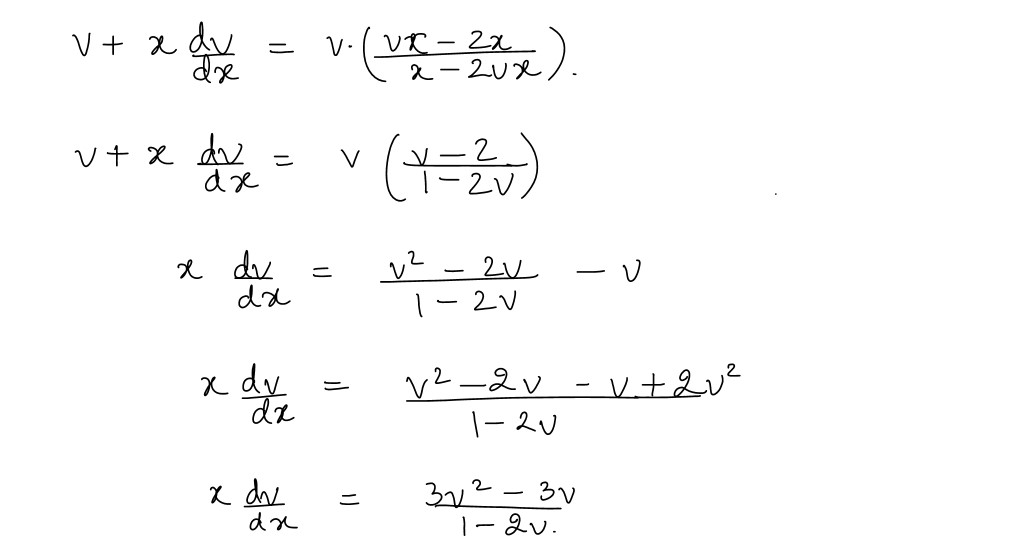 v + x dv/dx = v·((vx − 2x)/(x − 2vx)).
v + x dv/dx = v ((v − 2)/(1 − 2v))
x dv/dx = (v² − 2v)/(1 − 2v) − v
x dv/dx = (v² − 2v − v + 2v²)/(1 − 2v)
x dv/dx = (3v² − 3v)/(1 − 2v).